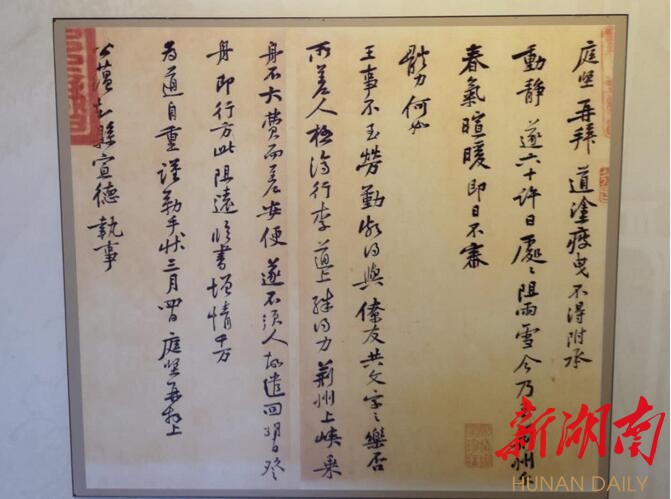 庭堅再拜 道塗疲曳不得附承
動靜 遂六十許日處〻阻雨雪今乃州
春氣暄暖即日不審
體力何如
王事不至勞勤頗得與僚友共文字之樂否
所差人極濟行李道上殊得力荊州上峽乘
舟不大費而差安便遂不須人故遣回明日登
舟即行方此阻遠臨書增情千万
為道自重謹勒手狀三月四日庭堅再拜上
公蘊知縣宣德 執事
新湖南
HUNAN DAILY